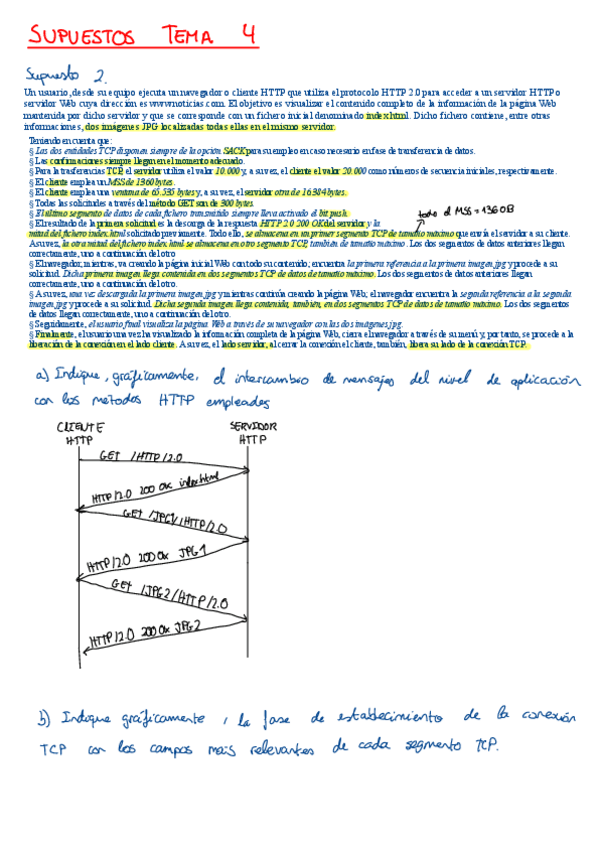 SUPUESTOS TEMA 4
Supuesto 2.
Un usuario, desde su equipo ejecuta un navegador o cliente HTTP que utiliza el protocolo HTTP 2.0 para acceder a un servidor HTTP o
servidor Web cuya dirección es www.noticias.com. El objetivo es visualizar el contenido completo de la información de la página Web
mantenida por dicho servidor y que se corresponde con un fichero inicial denominado index.html. Dicho fichero contiene, entre otras
informaciones, dos imágenes JPG localizadas todas ellas en el mismo servidor.
Teniendo en cuenta que:
§ Las dos entidades TCP disponen siempre de la opción SACK para su empleo en caso necesario en fase de transferencia de datos.
§ Las confirmaciones siempre llegan en el momento adecuado.
§ Para la trasferencias TCP, el servidor utiliza el valor 10.000 y, a su vez, el cliente el valor 20.000 como números de secuencia iniciales, respectivamente.
§ El cliente emplea un MSS de 1360 bytes.
§ El cliente emplea una ventana de 65.535 bytes y, a su vez, el servidor otra de 16384 bytes.
§ Todas las solicitudes a través del método GET son de 300 bytes.
§ El último segmento de datos de cada fichero transmitido siempre lleva activado el bit push.
todo el MSS = 1360B
§ El resultado de la primera solicitud es la descarga de la respuesta HTTP 2.0 200 OK del servidor y la
mitad del fichero index.html solicitado previamente. Todo ello, se almacena en un primer segmento TCP de tamaño máximo que envía el servidor a su cliente.
A su vez, la otra mitad del fichero index.html se almacena en otro segmento TCP, también de tamaño máximo. Los dos segmentos de datos anteriores llegan
correctamente, uno a continuación de otro
§ El navegador, mientras, va creando la página inicial Web con todo su contenido; encuentra la primera referencia a la primera imagen.jpg y procede a su
solicitud. Dicha primera imagen llega contenida en dos segmentos TCP de datos de tamaño máximo. Los dos segmentos de datos anteriores llegan
correctamente, uno a continuación del otro.
§ A su vez, una vez descargada la primera imagen.jpg y mientras continúa creando la página Web; el navegador encuentra la segunda referencia a la segunda
imagen.jpg y procede a su solicitud. Dicha segunda imagen llega contenida, también, en dos segmentos TCP de datos de tamaño máximo. Los dos segmentos
de datos llegan correctamente, uno a continuación del otro.
§ Seguidamente, el usuario final visualiza la página Web a través de su navegador con las dos imágenes jpg.
§ Finalmente, el usuario una vez ha visualizado la información completa de la página Web, cierra el navegador a través de su menú y, por tanto, se procede a la
liberación de la conexión en el lado cliente. A su vez, el lado servidor, al cerrar la conexión el cliente, también, libera su lado de la conexión TCP.
a) Indique, gráficamente, el intercambio de mensajes del nivel de aplicación
con los métodos HTTP empleados
CLIENTE HTTP
SERVIDOR HTTP
GET /HTTP/2.0
HTTP/2.0 200 OK index.html
GET /JPG1/HTTP/2.0
HTTP/2.0 200 OK JPG1
GET /JPG2/HTTP/2.0
HTTP/2.0 200 OK JPG2
b) Indique gráficamente, la fase de establecimiento de la conexión
TCP con los campos más relevantes de cada segmento TCP.